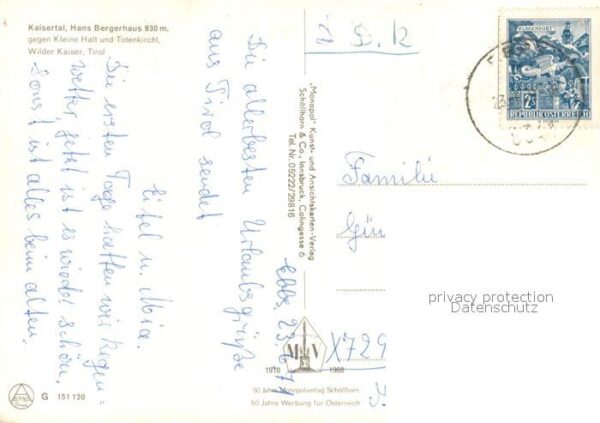 Kaisertal, Hans Bergerhaus 930 m,
gegen Kleine Halt und Totenkirchl,
Wilder Kaiser, Tirol
Ebbs, 23.6.71
Die allerbesten Urlaubsgrüße
aus Tirol sendet
Eifel u. Mica.
Die ersten Tage hatten wir Regen-
wetter, jetzt ist es wieder schön.
Sonst ist alles beim alten.
G 151 120
"Monopol" Kunst- und Ansichtskarten-Verlag
Schöllhorn & Co., Innsbruck, Colingasse 6
Tel. Nr. 05222/29816
1918 1968
50 Jahre Monopolverlag Schöllhorn
50 Jahre Werbung für Österreich
KLAGENFURT
2S
REPUBLIK ÖSTERREICH
Familie
Gün
X729
privacy protection
Datenschutz